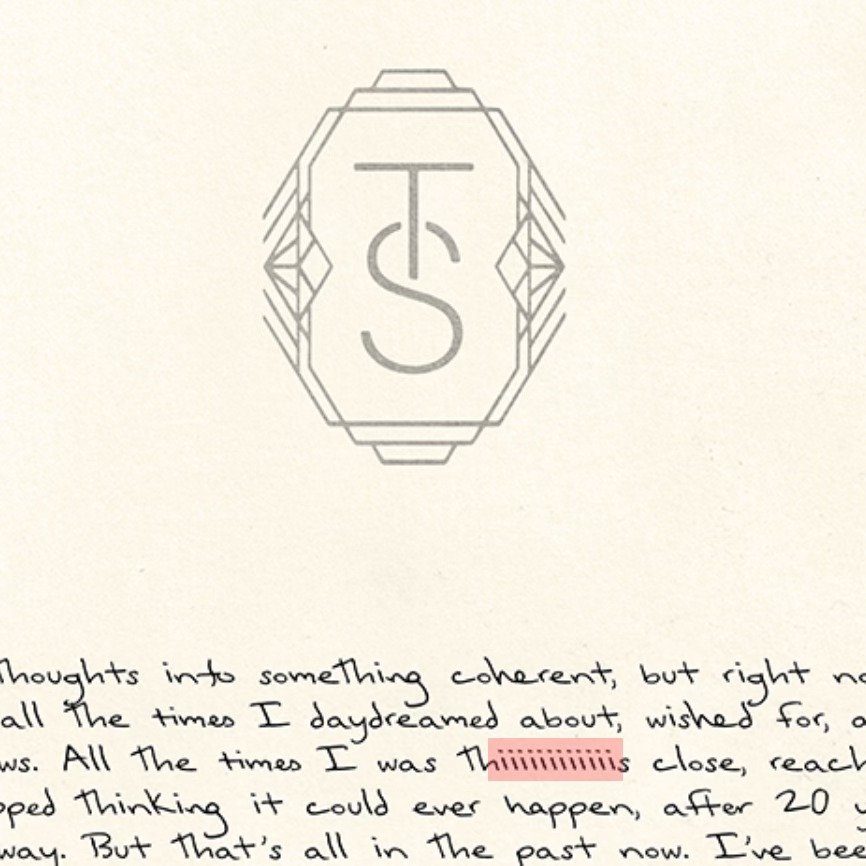 TS
thoughts into something coherent, but right no
all the times I daydreamed about, wished for, a
ws. All the times I was thiiiiiiiiiiiis close, reach
pped thinking it could ever happen, after 20 y
way. But that's all in the past now. I've bee